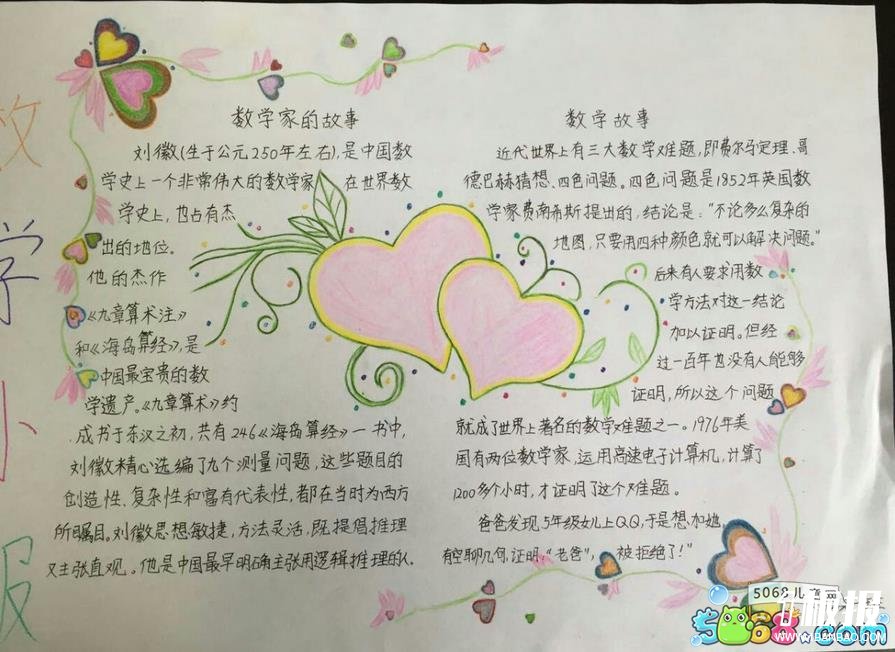 数学小报
数学家的故事
刘徽(生于公元250年左右),是中国数
学史上一个非常伟大的数学家 在世界数
学史上,也占有杰
出的地位.
他的杰作
《九章算术注》
和《海岛算经》,是
中国最宝贵的数
学遗产。《九章算术》约
成书于东汉之初,共有246《海岛算经》一书中,
刘徽精心选编了九个测量问题,这些题目的
创造性、复杂性和富有代表性,都在当时为西方
所瞩目。刘徽思想敏捷,方法灵活,既提倡推理
又主张直观。他是中国最早明确主张用逻辑推理的人
数学故事
近代世界上有三大数学难题,即费尔马定理、哥
德巴赫猜想、四色问题。四色问题是1852年英国数
学家费南希斯提出的,结论是:"不论多么复杂的
地图,只要用四种颜色就可以解决问题。"
后来有人要求用数
学方法对这一结论
加以证明。但经
过一百年也没有人能够
证明,所以这个问题
就成了世界上著名的数学难题之一。1976年美
国有两位数学家,运用高速电子计算机,计算了
1200多个小时,才证明了这个难题。
爸爸发现5年级女儿上QQ,于是想加她,
有空聊几句,证明:"老爸",被拒绝了!"
5068儿童网
5068.com
板报
WWW.BANBAO.COM